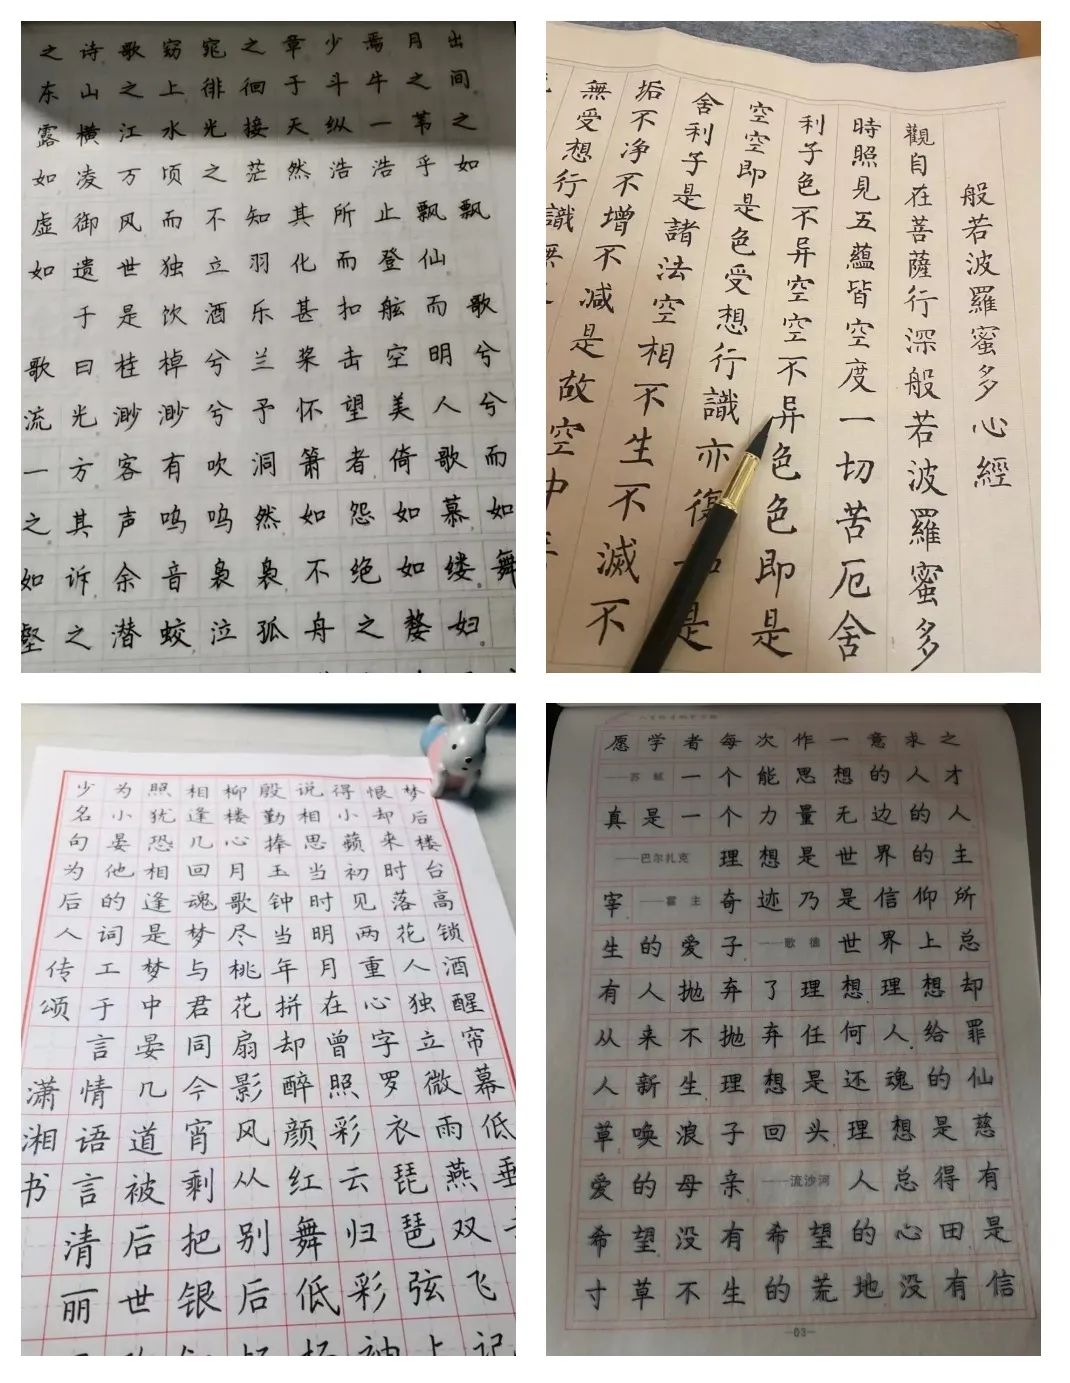 之诗歌窈窕之章少焉月出
东山之上徘徊于斗牛之间
露横江水光接天纵一苇之
如凌万顷之茫然浩浩乎如
虚御风而不知其所止飘飘
如遗世独立羽化而登仙
于是饮酒乐甚扣舷而歌
歌曰桂棹兮兰桨击空明兮
流光渺渺兮予怀望美人兮
一方客有吹洞箫者倚歌而
之其声呜呜然如怨如慕如
如诉余音袅袅不绝如缕舞
壑之潜蛟泣孤舟之嫠妇
般若波羅蜜多心經
觀自在菩薩行深般若波羅蜜多
時照見五蘊皆空度一切苦厄舍
利子色不异空空不异色色即是
空空即是色受想行識亦復如是
舍利子是諸法空相不生不滅不
垢不净不增不减是故空中
無受想行識無
梦后楼台高锁酒醒帘幕低垂
恨却来时落花人独立微雨燕双飞记
得小蘋初见两重心字罗衣琵琶弦上
说相思当时明月在曾照彩云归彩袖
殷勤捧玉钟当年拼却醉颜红舞低杨
柳楼心月歌尽桃花扇影风从别后
相逢几回魂梦与君同今宵剩把银
照犹恐相逢是梦中晏几道被后世
为小晏他的词工于言情语言清丽
少名句为后人传颂
潇湘书
愿学者每次作一意求之
——苏轼 一个能思想的人才
真是一个力量无边的人
——巴尔扎克 理想是世界的主
宰 ——霍 主 奇迹乃是信仰所
生的爱子 ——歌 德 世界上总
有人抛弃了理想理想却
从来不抛弃任何人给罪
人新生理想是还魂的仙
草唤浪子回头理想是慈
爱的母亲 ——流沙河 人总得有
希望没有希望的心田是
寸草不生的荒地没有信
—03—